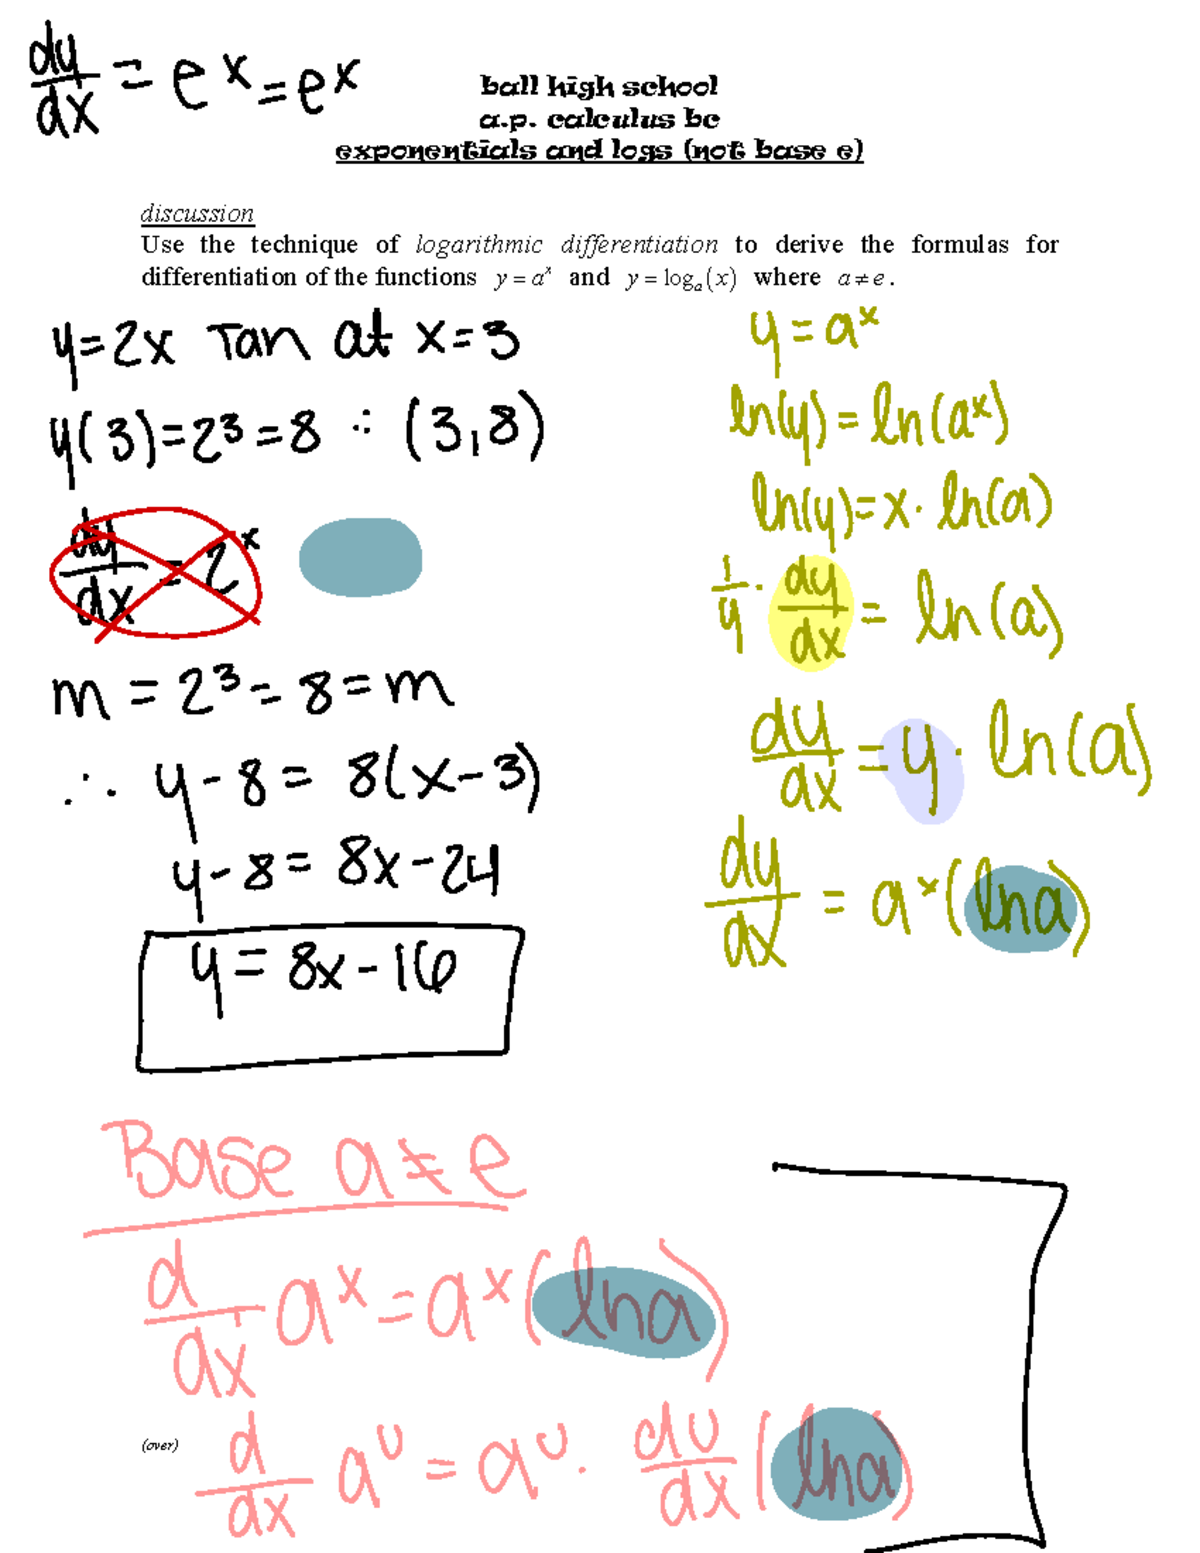 dy/dx = e^x = e^x
ball high school
a.p. calculus bc
exponentials and logs (not base e)
discussion
Use the technique of logarithmic differentiation to derive the formulas for
differentiation of the functions y = a^x and y = log_a(x) where a ≠ e.
y=2x Tan at x=3
y(3)=2^3=8 ∴ (3,8)
dy/dx = 2^x
m = 2^3 = 8 = m
∴ y-8 = 8(x-3)
y-8 = 8x-24
y = 8x-16
y = a^x
ln(y) = ln(a^x)
ln(y) = x · ln(a)
1/y · dy/dx = ln(a)
dy/dx = y · ln(a)
dy/dx = a^x (ln a)
Base a ≠ e
d/dx a^x = a^x (ln a)
(over)
d/dx a^u = a^u · du/dx (ln a)